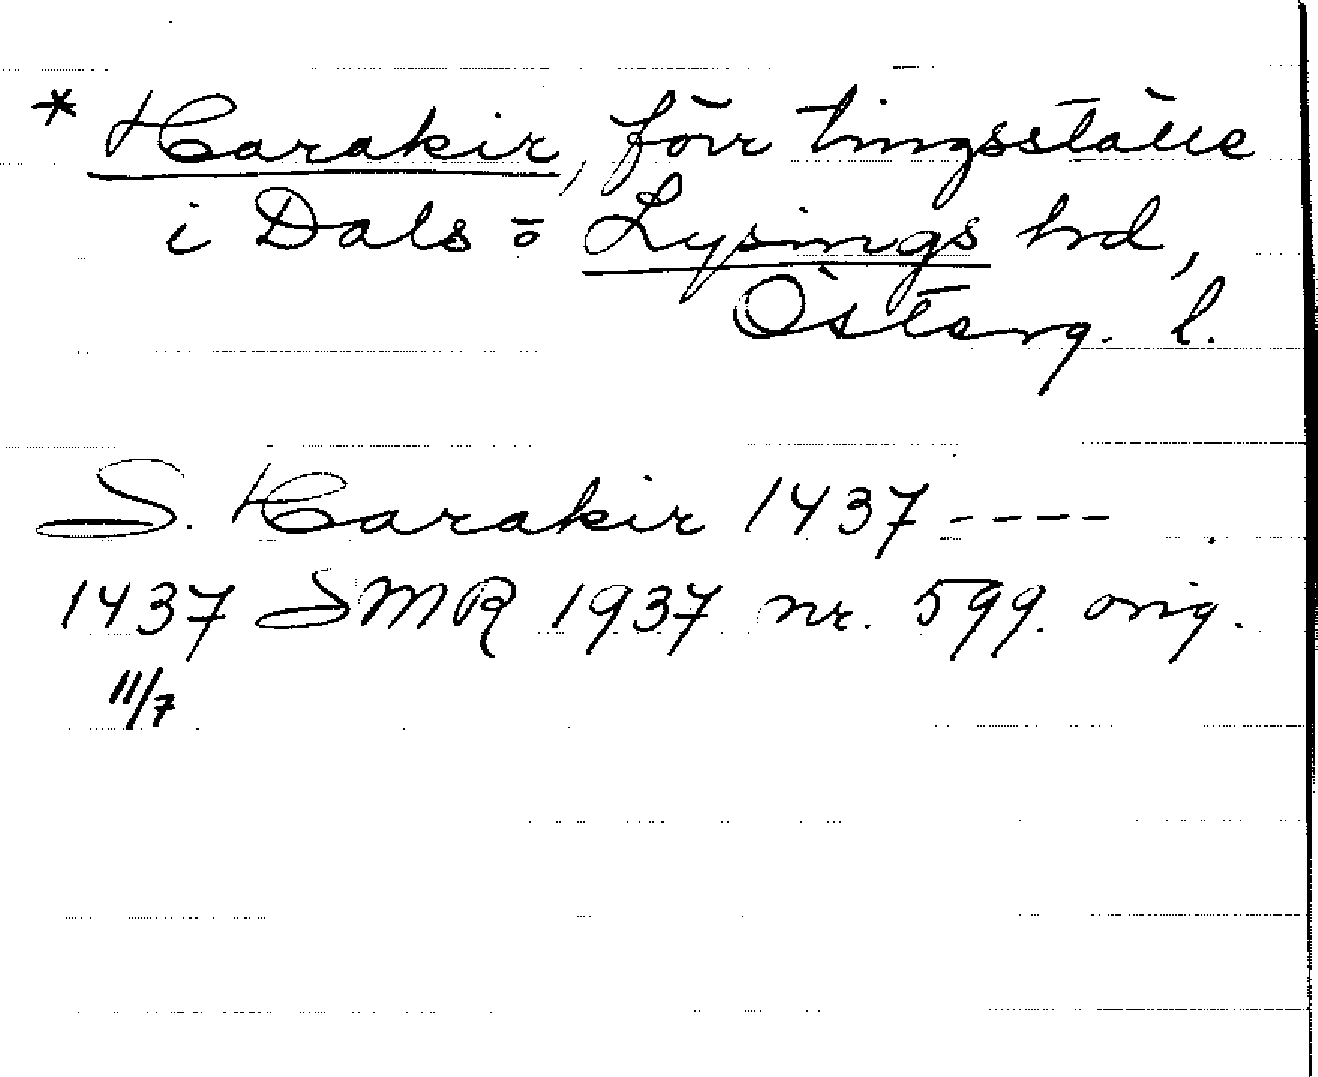 * Harakir, förr tingsställe
i Dals o Lysings hrd,
Österg. l.
S. Harakir 1437 ----.
1437 SMR 1937 nr. 599. orig.
11/7